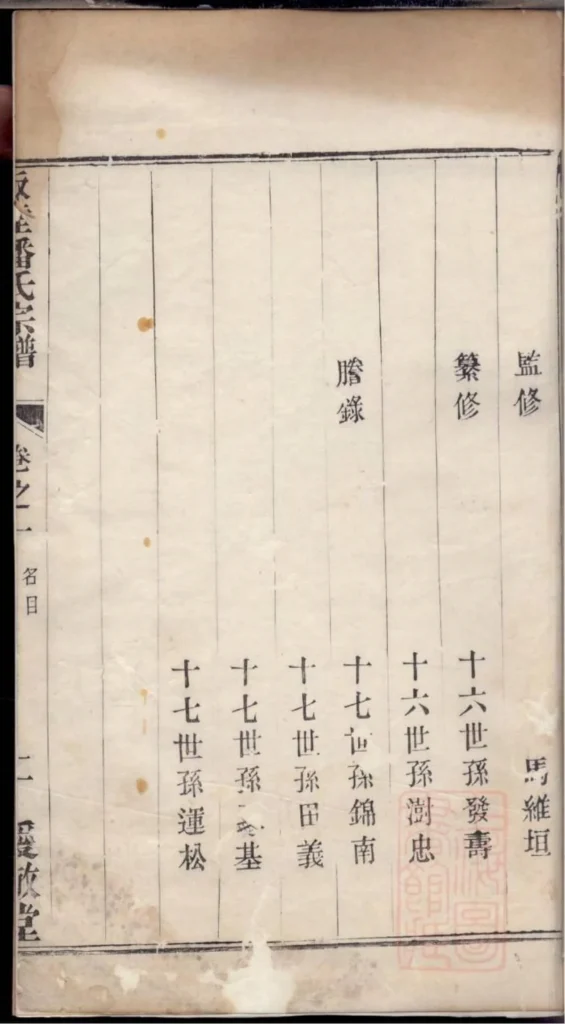 監修 馬維垣
纂修 十六世孫發壽
十六世孫澍忠
謄錄 十七世孫錦南
十七世孫田義
十七世孫 基
十七世孫運松
潘氏宗譜 卷之一 名目 二 堂